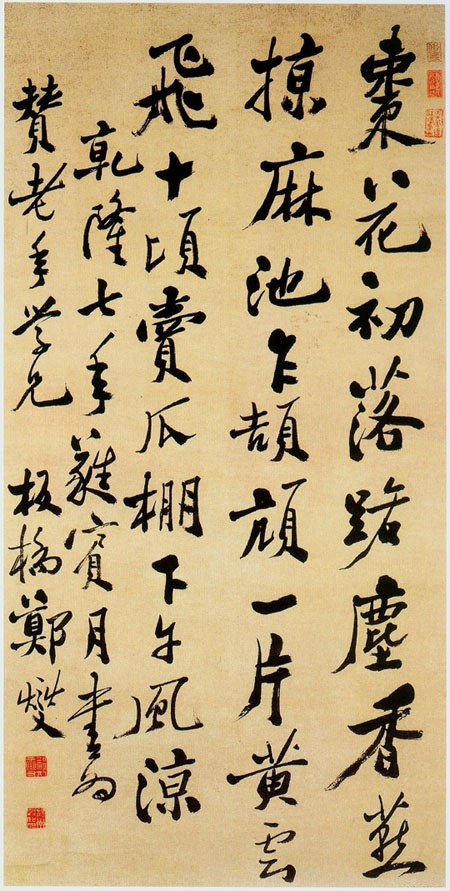 棗花初落路塵香燕
掠麻池乍頡頏一片黄雲
飛十頃賣瓜棚下午風涼
乾隆七年蕤賓月書為
贊老年學兄 板橋鄭燮